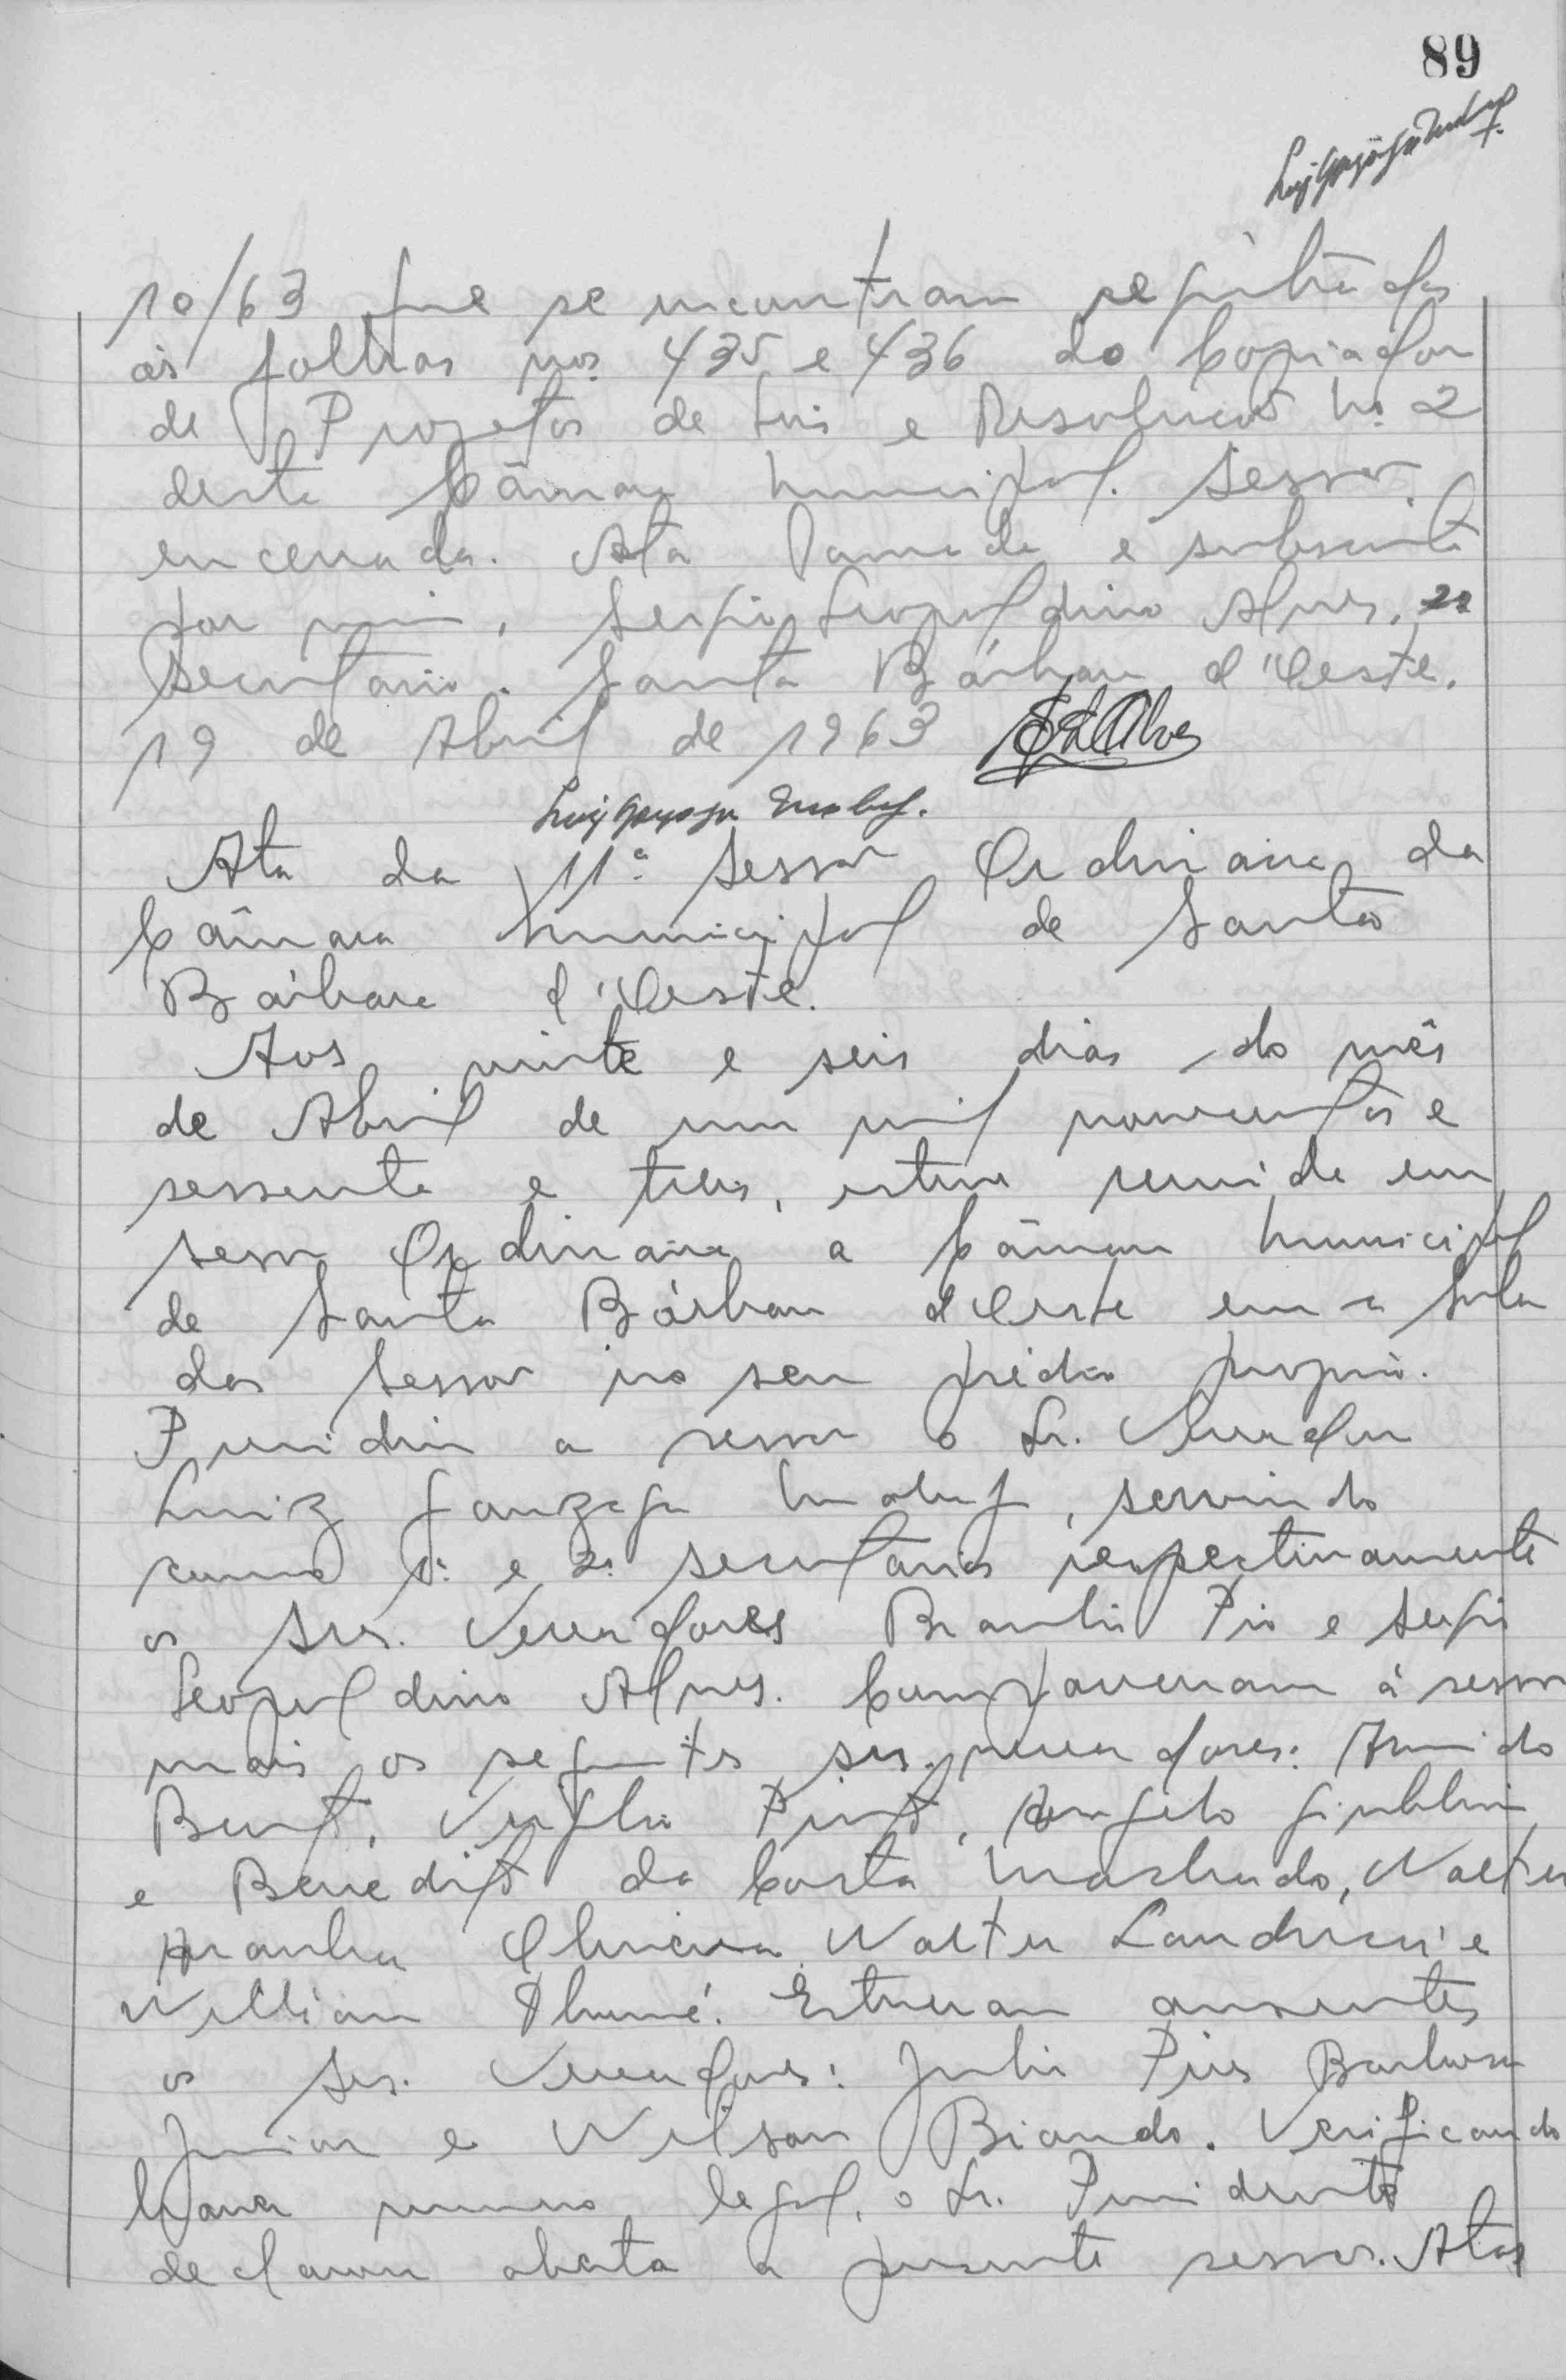 89
10/63 que se encontram registrados
às folhas nos. 435 e 436 do Copiador
de Projetos de Leis e Resolução nº 2
desta Câmara Municipal. Sessão
encerrada. Ata lavrada e subscrita
por mim, Sergio Leopoldino Alves, 2º
Secretario. Santa Bárbara d'Oeste,
19 de Abril de 1963
Ata da 11ª Sessão Ordinaria da
Câmara Municipal de Santa
Bárbara d'Oeste.
Aos vinte e seis dias do mês
de Abril de um mil novecentos e
sessenta e tres, esteve reunida em
sessão Ordinaria a Câmara Municipal
de Santa Bárbara d'Oeste em a sala
das Sessão no seu prédio proprio.
Presidiu a sessão o Sr. Vereador
Luiz Gonzaga Maluf, servindo
como 1º e 2º secretarios respectivamente
os Srs. Vereadores Braulio Pio e Sergio
Leopoldino Alves. Compareceram à sessão
mais os seguintes srs. vereadores: Arnaldo
Bento, Virgilio Pinto, Angelo Giubbini
e Benedito da Costa Machado, Walter
Aranha Oliveira, Walter Landucci e
Willian Dhumé. Estiveram ausentes
os Srs. Vereadores: Julio Pires Barbosa
Junior e Wilson Biondo. Verificando
haver numero legal, o Sr. Presidente
declarou aberta a presente sessão. Atas